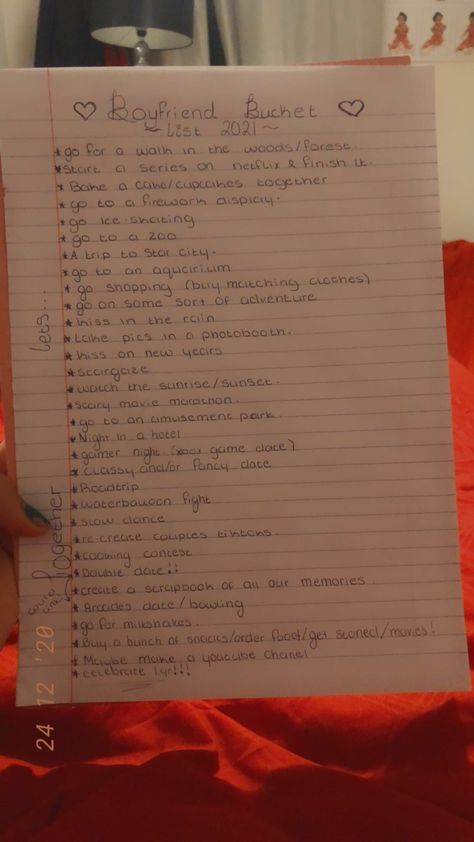 ♡ Boyfriend Bucket ♡
~ List 2021 ~
* go for a walk in the woods/forest.
* Start a series on netflix & finish it.
* Bake a cake/cupcakes together
* go to a firework display.
* go ice-skating
* go to a zoo
* A trip to Star City.
* go to an aquarium
* go shopping (buy matching clothes)
* go on some sort of adventure
* kiss in the rain
* take pics in a photobooth.
* kiss on new years
* stargaze
* watch the sunrise/sunset.
* scary movie marathon.
* go to an amusement park.
* Night in a hotel
* gamer night (xbox game date)
* classy and/or fancy date
* Roadtrip
* waterballoon fight
* slow dance
* re-create couples tiktoks.
* cooking contest
* Double date!!
* create a scrapbook of all our memories.
* Arcades date/bowling
* go for milkshakes.
* Buy a bunch of snacks/order food/get stoned/movies!
* Maybe make a youtube chanel
* celebrate 1yr!!!
Lets...
Together
24 12 '20